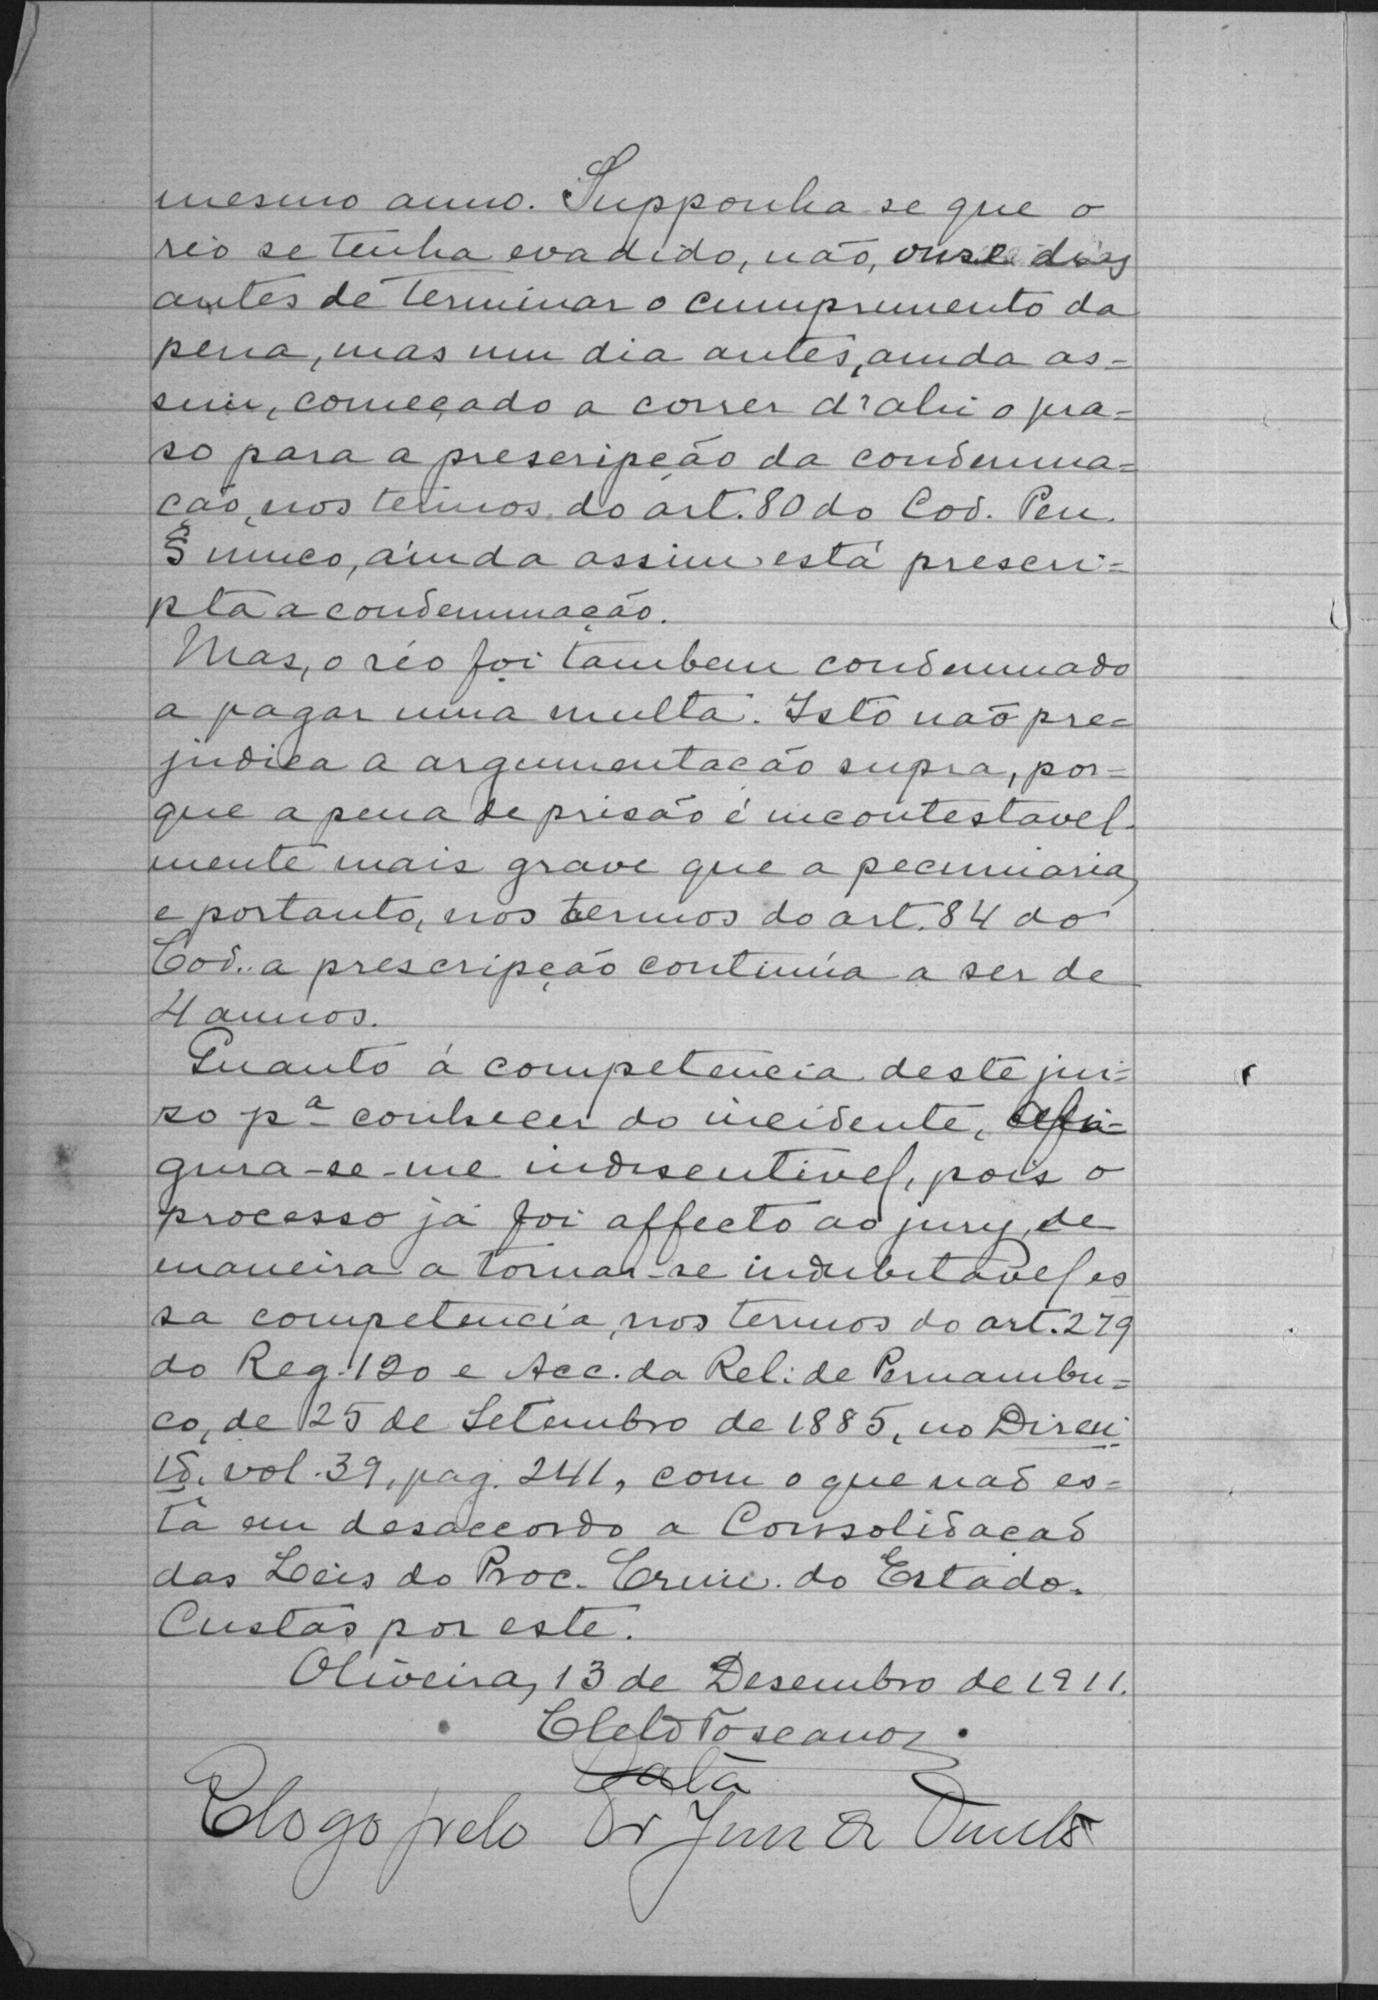 mesmo anno. Supponha-se que o
réo se tenha evadido, não, onse dias
antes de terminar o cumprimento da
pena, mas um dia antes, ainda as=
sim, começado a correr d'ahi o pra=
so para a prescripção da condemna=
ção, nos termos do art. 80 do Cod. Pen.
§ unico, ainda assim está prescri=
pta a condemnação.
Mas, o réo foi tambem condemnado
a pagar uma multa. Isto não pre=
judica a argumentação supra, por=
que a pena de prisão é incontestavel-
mente mais grave que a pecuniaria,
e portanto, nos termos do art. 84 do
Cod. a prescripção continúa a ser de
4 annos.
Quanto á competencia deste jui=
so pª conhecer do incidente, afi=
gura-se-me indiscutivel, pois o
processo já foi affecto ao jury, de
maneira a tornar-se indubitavel es
sa competencia, nos termos do art. 279
do Reg. 120 e Acc. da Rel. de Pernambu=
co, de 25 de Setembro de 1885, no Direi
to, vol. 39, pag. 241, com o que não es=
tá em desaccordo a Consolidação
das Leis do Proc. Crim. do Estado.
Custas por este.
Oliveira, 13 de Desembro de 1911.
Cleto Toscano
Data
E logo pelo Dr Juiz de Direito